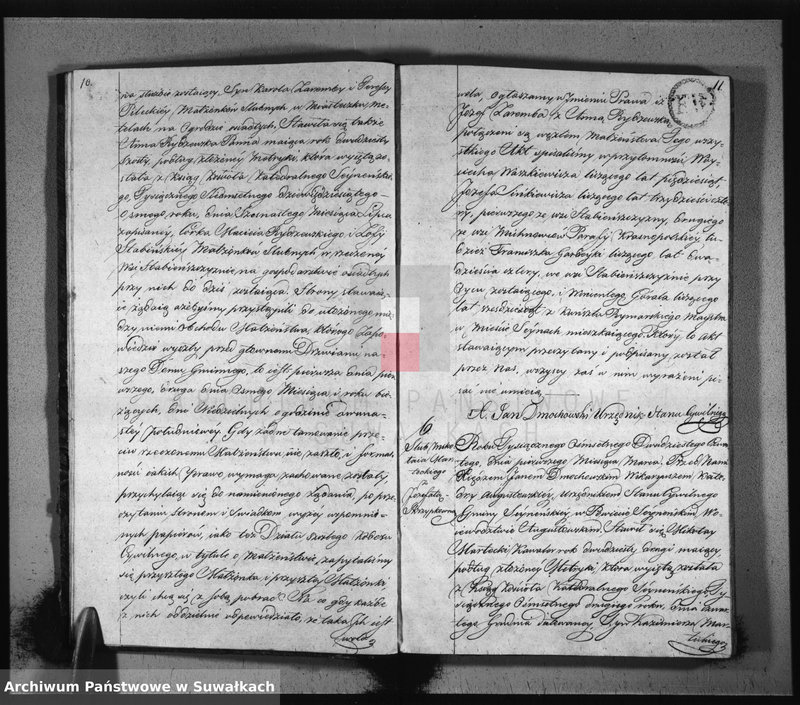 10.
na służbie zostaiący, Syn Karola Zaremby i Teressy
Pileckiey, Małżonków Ślubnych, w Miasteczku Me-
telach na Ogrodzie osiadłych, Stawiła się także
Anna Rybszewska Panna maiąca rok dwudziesty
szósty, podług złożoney Metryki, która wyięta zo-
stała z Ksiąg Kościoła Katedralnego Seynenskie-
go Tysiącznego Siedmsetnego dziewiędziesiątego
Osmego, roku, dnia Szesnastego Miesiąca Lipca
zapisaney, córka Macieia Rybszewskiego i Zofij
Małżonków Ślubnych w rzeczoney
Wsi Stabienszczyznie na gospodarstwie osiadłych
przy nich do dziś zostaiąca. Strony stawaią-
ce żądaią ażebyśmy przystąpili do ułożonego mię-
dzy niemi obchodu Małżeństwa, którego Zapo-
wiedzie wyszły przed głównemi Drzwiami na-
szego Domu Gminnego, to iest pierwsza dnia pier-
wszego, druga dnia Osmego Miesiąca i roku bie-
żących, dni Niedzielnych o godzinie dwuna-
stey Południowey Gdy żadne tamowanie prze-
ciw rzeczonemu Małżeństwu nie zaszło, i formal-
ność iakich Prawo wymaga zachowane zostały
przychylaiąc się do namienionego żądania, po prze-
czytaniu Stronom i Świadkom wyżey wspomnio-
nych papierów, iako też Działu szóstego Kodexu
Cywilnego, w tytule o Małżeństwie, zapytaliśmy
się przyszłego Małżonka i przyszłey Małżonki
czyli chcą się z sobą pobrać? Na co gdy każde
z nich oddzielnie odpowiedziało, że taka ich iest
wola
11
wola, ogłaszamy w Imieniu Prawa iż
Józef Zaremba, z Anną Rybszewską
połączeni są węzłem Małżeństwa. Tego wszy-
stkiego Akt spisaliśmy w przytomności Woy-
ciecha Waszkiewicza liczącego lat pięćdziesiąt,
Józefa Sinkiewicza liczącego lat trzydzieści czte-
ry, pierwszego ze wsi Stabienszczyzny, drugiego
ze wsi Michnowiec Parafij Krasnopolskiey tu-
dzież Franciszka liczącego lat dwa-
dzieścia cztery, we wsi Stabienszczyznie przy
Oycu zostaiącego, i Wincentego Górala liczącego
lat sześdziesiąt z Kunsztu Rymarskiego Maystra
w Mieście Seynach mieszkaiącego. Który to Akt
stawaiącym przeczytany i podpisany został
przez Nas, wszyscy zaś w nim wyrażeni pi-
sać nie umieią
X. Jan Dmochowski Urzędnik Stanu Cywilnego
6
Ślub Miko-
łaia Mar-
z
Józefatą
Roku Tysiącznego Ośmsetnego Dwudziestego Czwar-
tego, dnia pierwszego Miesiąca Marca. Przed Nami
Xiędzem Janem Dmochowskim Wikaryuszem Kate-
dry Augustowskiey, Urzędnikiem Stanu Cywilnego
Gminy Seynenskiey w Powiecie Seynenskim Wo-
iewództwie Augustowskim. Stawił się Mikołay
Kawaler rok dwudziesty drugi maiący
podług złożoney Metryki, która wyięta została
z Ksiąg Kościoła Katedralnego Seynenskiego, Ty-
siącznego Ośmsetnego drugiego roku, dnia czwar-
tego Grudnia datowaney, Syn Kazimierza Mar-
Archiwum Państwowe w Suwałkach